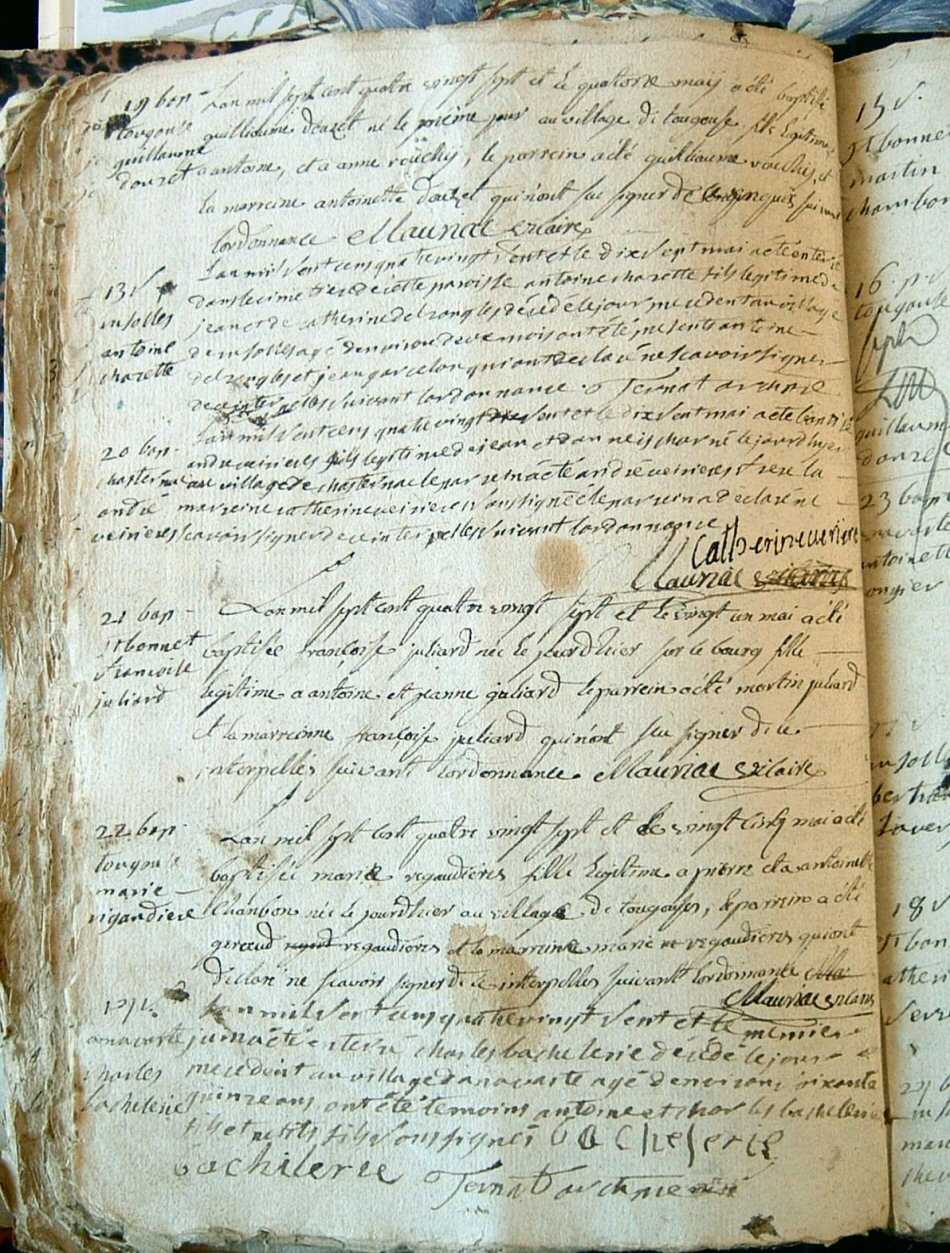 19 bap
tougouse
guillaume
douzet
Lan mil sept cent quatre vingt sept et le quatorze maij a été baptisé
guilliaume douzet né le jour au village de tougouse fils legitime
a antoine, et a anne rouchij, le parrein a été guilliaume rouchij, et
la marreine antoinette douzet qui n'ont sçu signer de ce enquis suivant
lordonnance Mauriac vicaire
13 S
insolles
antoine
charette
Lan mil sent cens quatre vingt sent et le dix sept mai a été enterré
dans le cimetiere de cette paroisse antoine charette fils legitime de
jean et de catherine delzongles décédé le jour precedent au village
de insolles agé denviron deze mois ont été presents antoine
delzongles et jean garcelon qui ont declaré ne scavoir signer
de ce interpelles suivant lordonnance. Ternat archpre
20 bap
chasternac
andré
veirieres
Lan mil sent cens quatre vingt sent et le dix sent mai a été bantisé
andre veirieres fils legitime de jean et danne ischarne le jour dhyer
au village de chasternac le parrein a été andré veirieres frere la
marreine catherine veirieres soussignée le parrein a declaré ne
scavoir signer de ce interpelles suivant lordonnance
Catherine verriere
Mauriac
21 bap
st bonnet
francoise
juliard
Lan mil sept cent quatre vingt sept et le vingt un mai a été
baptisée françoise juliard née le jourdhier sur le bourg fille
legitime a antoine et jeanne juliard le parrein a été martin juliard
et la marreinne françoise juliard qui n'ont sçu signer de ce
interpellés suivant lordonnance Mauriac vicaire
22 bap
tougouse
marie
rigaudiere
Lan mil sept cent quatre vingt sept et le vingt cinq mai a été
baptisée marie regaudieres fille legitime a pierre et a antoinette
Chanbon née le jourdhier au village de tougouse, le parrein a été
geraud regaudieres et la marreine marie regaudieres qui ont
déclaré ne scavoir signer de ce interpelles suivant lordonnance
Mauriac vicaire
anavarte
charles
bachelerie
Lan mil sent cens quatre vingt sent et le premier
juin a été enterré charles bachelerie décédé le jour
precedent au village danavarte agé denviron soixante
quinze ans ont été temoins antoine et charles bachelerie
fils et petits fils soussignés bachelerie
bachilerie Ternat archpretre
15 S.
st bonnet
martin
chambon
16
tougouse
guillaume
douzet
23 bap
antoinette
18 S